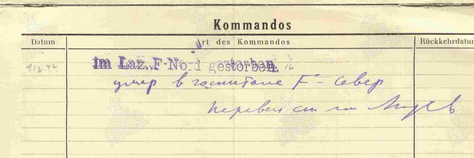 Kommandos
Datum Art des Kommandos Rückkehrdatum
im Laz. F-Nord gestorben.
умер в госпитале F-север
перевел